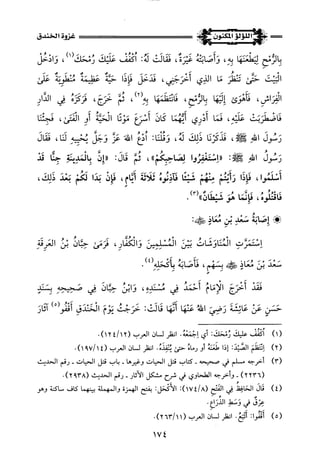 اللؤلؤ المكنون
غزوة الخندق
بِالرُّمْحِ لِيَطْعَنَهَا بِهِ، وَأَصَابَتْهُ غَيْرَةٌ، فَقَالَتْ لَهُ: أُكْفُفْ عَلَيْكَ رُمْحَكَ(١)، وَادْخُلِ
الْبَيْتَ حَتَّى تَنْظُرَ مَا الذِي أَخْرَجَنِي، فَدَخَلَ فَإِذَا حَيَّةٌ عَظِيمَةٌ مُنْطَوِيَةٌ عَلَى
الْفِرَاشِ، فَأَهْوَى إِلَيْهَا بِالرُّمْحِ، فَانْتَظَمَهَا بِهِ(٢)، ثُمَّ خَرَجَ، فَرَكَزَهُ فِي الدَّارِ
فَاضْطَرَبَتْ عَلَيْهِ، فَمَا أَدْرِي أَيُّهُمَا كَانَ أَسْرَعَ مَوْتًا الْحَيَّةُ أَوِ الْفَتَى، فَجِئْنَا
رَسُولَ اللهِ ﷺ، فَذَكَرْنَا ذَلِكَ لَهُ، وَقُلْنَا: اُدْعُ اللهَ عَزَّ وَجَلَّ يُحْيِيهِ لَنَا، فَقَالَ
رَسُولُ اللهِ ﷺ: «اِسْتَغْفِرُوا لِصَاحِبِكُمْ»، ثُمَّ قَالَ: «إِنَّ بِالْمَدِينَةِ جِنًّا قَدْ
أَسْلَمُوا، فَإِذَا رَأَيْتُمْ مِنْهُمْ شَيْئًا فَآذِنُوهُ ثَلَاثَةَ أَيَّامٍ، فَإِنْ بَدَا لَكُمْ بَعْدَ ذَلِكَ،
فَاقْتُلُوهُ، فَإِنَّمَا هُوَ شَيْطَانٌ»(٣).
◉ إِصَابَةُ سَعْدِ بْنِ مُعَاذٍ ﷺ:
اِسْتَمَرَّتِ الْمُنَاوَشَاتُ بَيْنَ الْمُسْلِمِينَ وَالْكُفَّارِ، فَرَمَى حِبَّانُ بْنُ الْعَرِقَةِ
سَعْدَ بْنَ مُعَاذٍ بِسَهْمٍ، فَأَصَابَهُ بِأَكْحَلِهِ(٤).
فَقَدْ أَخْرَجَ الْإِمَامُ أَحْمَدُ فِي مُسْنَدِهِ، وَابْنُ حِبَّانَ فِي صَحِيحِهِ بِسَنَدٍ
حَسَنٍ عَنْ عَائِشَةَ رَضِيَ اللهُ عَنْهَا أَنَّهَا قَالَتْ: خَرَجْتُ يَوْمَ الْخَنْدَقِ أَقْفُو(٥) آثَارَ
(١) أُكْفُفْ عليك رُمْحَكَ: أي اِجْمَعْهُ. انظر لسان العرب (١٢/١٢٤).
(٢) اِنْتَظَمَ الصَّيْدَ: إذا طَعَنَهُ أو رماهُ حتى يُنْفِذَهُ. انظر لسان العرب (١٤/١٩٧).
(٣) أخرجه مسلم في صحيحه ـ كتاب قتل الحيات وغيرها ـ باب قتل الحيات ـ رقم الحديث
(٢٢٣٦) ـ وأخرجه الطحاوي في شرح مشكل الآثار ـ رقم الحديث (٢٩٣٨).
(٤) قال الحَافِظُ في الفَتْحِ (٨/١٧٤): الأَكْحَلُ: بفتح الهمزة والمهملة بينهما كاف ساكنة وهو
عِرْقٌ في وَسَطِ الذِّرَاعِ.
(٥) أَقْفُو: أتَّبِعُ. انظر لسان العرب (١١/٢٦٣).
١٧٤